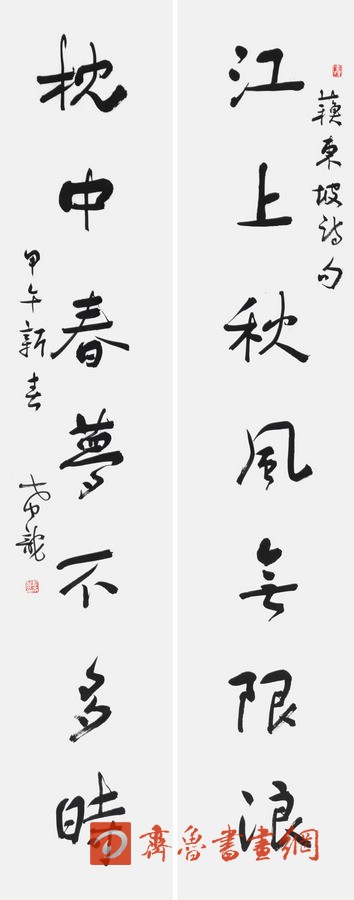 蘇東坡詩句
江上秋風無限浪
枕中春夢不多時
甲午新春
齊魯書畫網